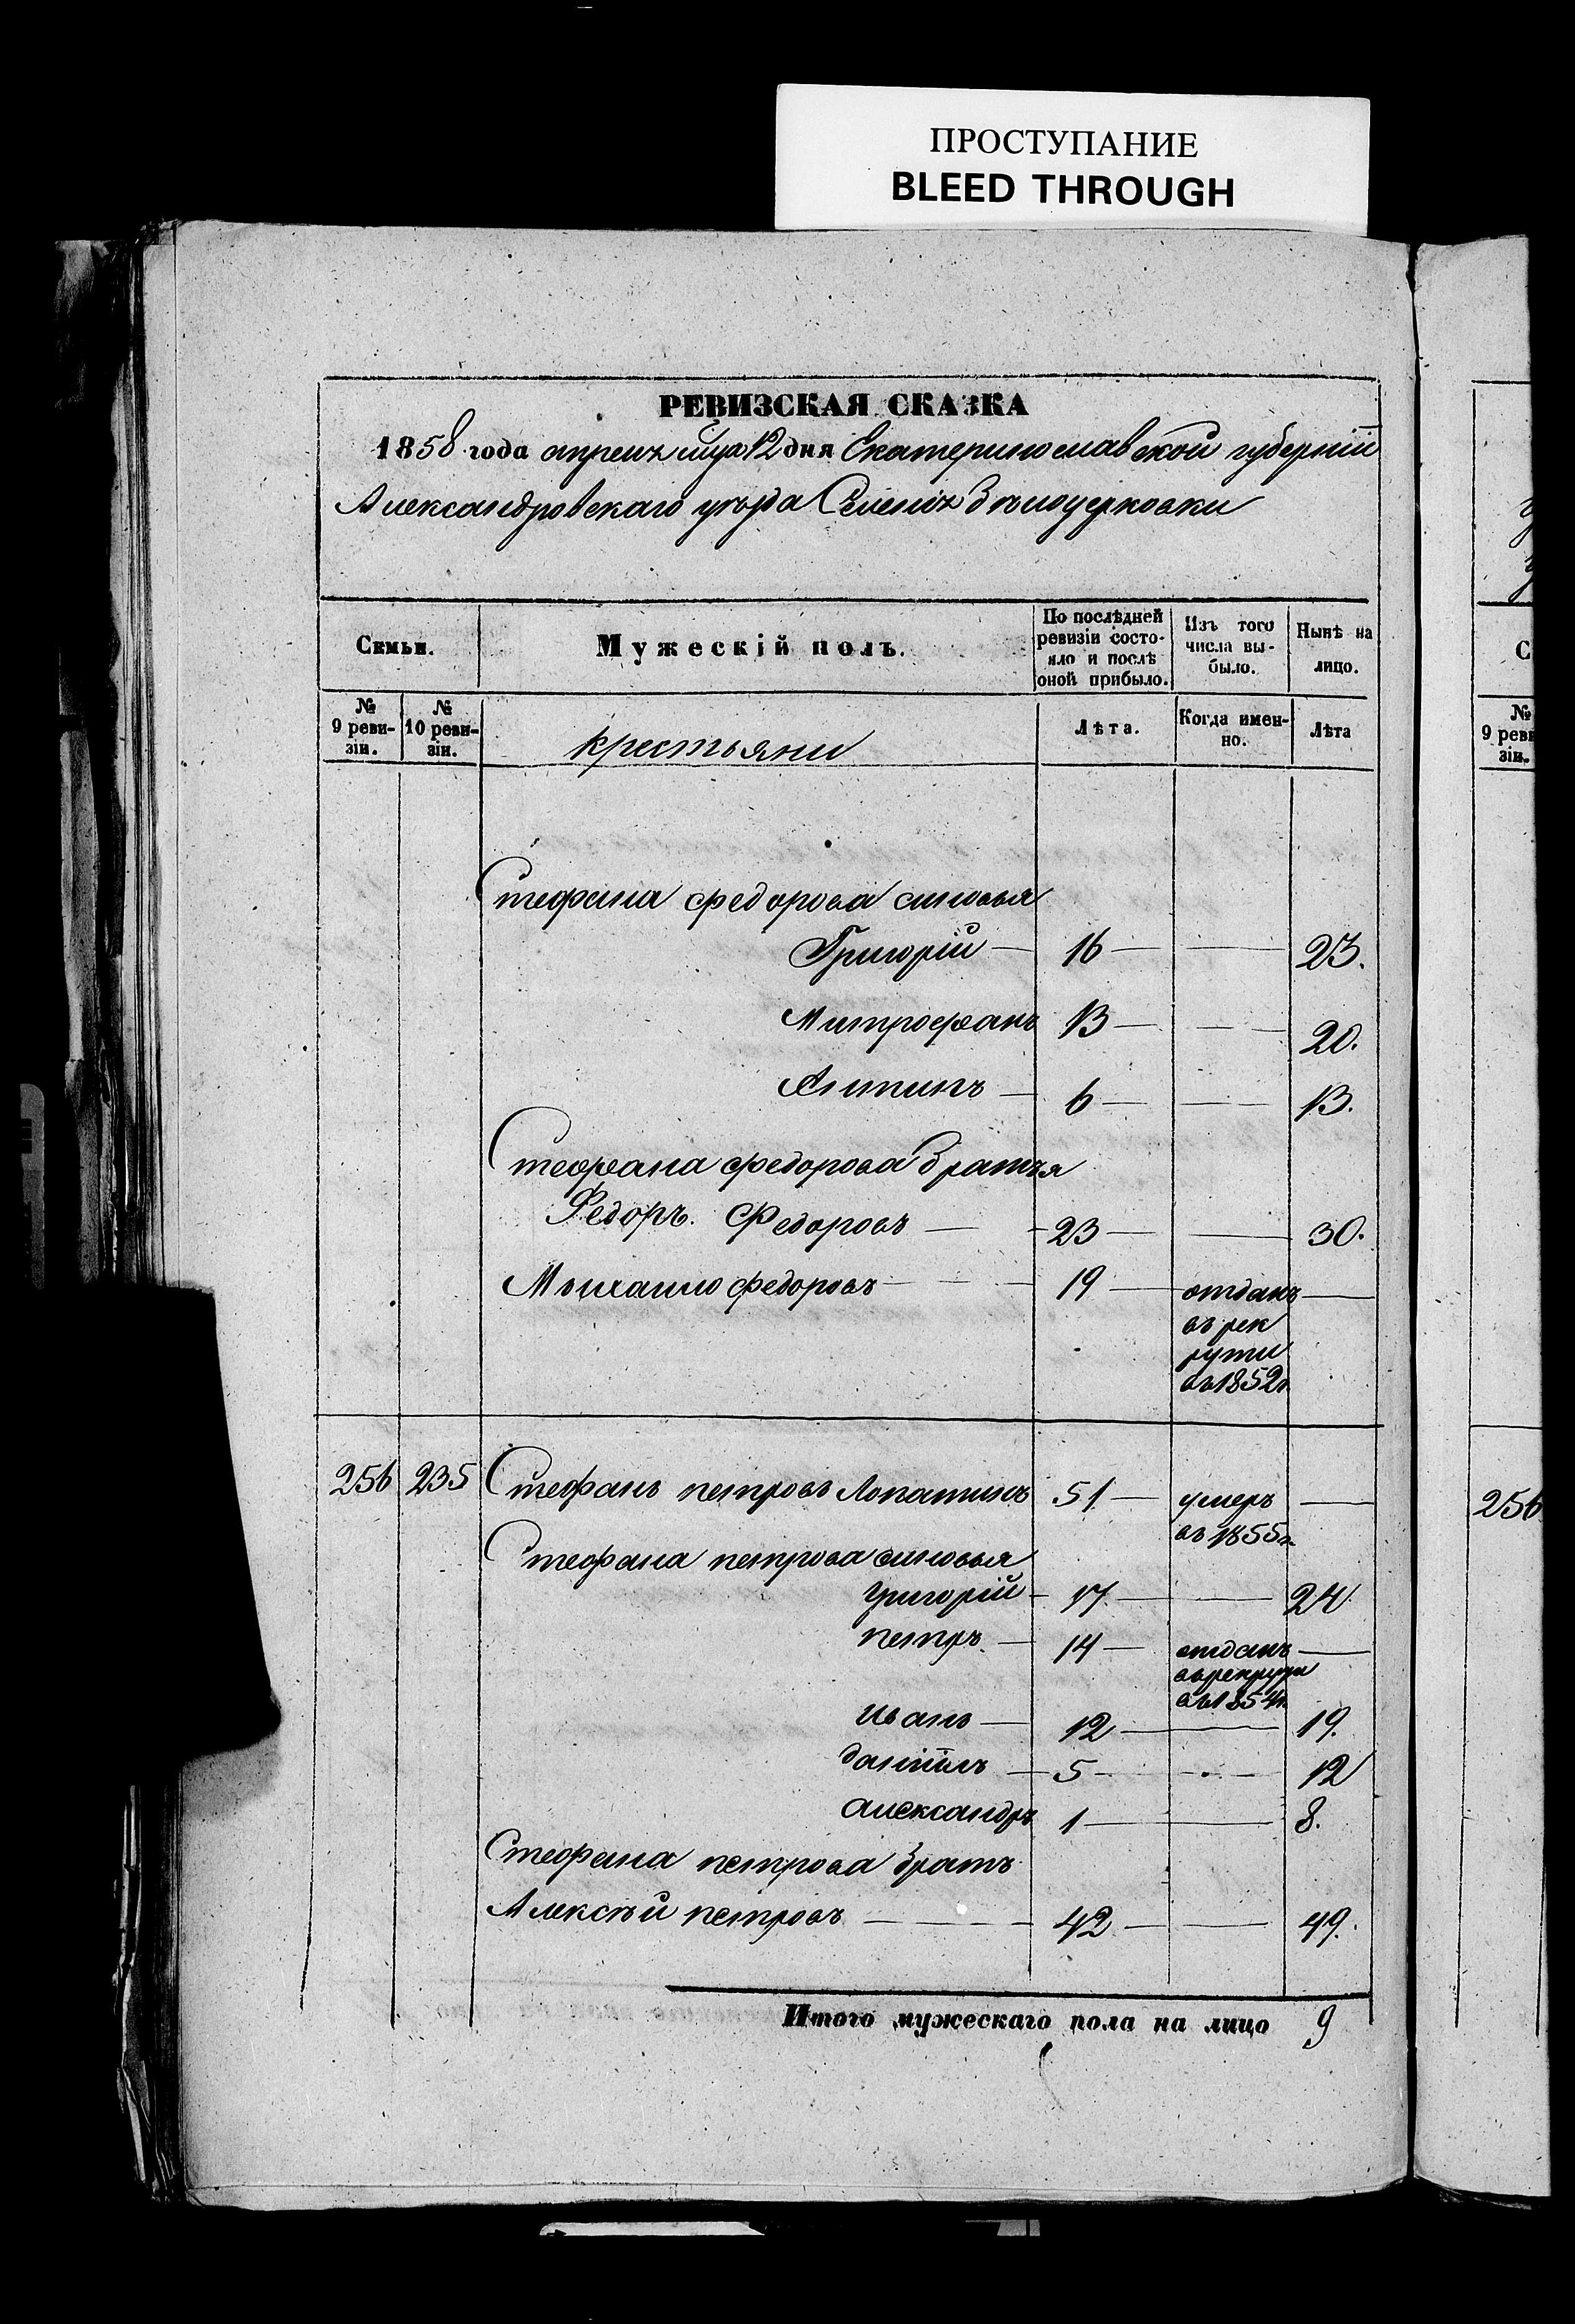 ПРОСТУПАНИЕ
BLEED THROUGH
РЕВИЗСКАЯ СКАЗКА
1858 года апреля мца 12 дня Екатеринославской губерніи
Александровскаго уѣзда Селенія Бѣлоцерковки
Семьи.
Мужескій полъ.
По послѣдней ревизіи состо-
яло и послѣ оной прибыло.
Изъ того числа вы-
было.
Нынѣ на лицо.
№ 9 реви-
зіи.
№ 10 реви-
зіи.
крестьяни
Лѣта.
Когда имен-
но.
Лѣта
Стефана федорова синовья
Григорій — 16 — — 23.
Митрофанъ 13 — — 20.
Антипъ — 6 — — 13.
Стефана федорова братья
Федоръ. Федоровъ — 23 — — 30.
Михаило федоровъ — 19 — отданъ —
въ рек
рути
въ 1852г.
256 235 Стефанъ петровъ Лопатинъ 51 — умеръ —
въ 1855г.
Стефана петрова синовья
григорій — 17 — — 24
петръ — 14 — отданъ —
въ рекрути
въ 1854г.
иванъ — 12 — — 19.
даніилъ — 5 — — 12
александръ 1 — — 8.
Стефана петрова братъ
Алексѣй петровъ — 42 — — 49.
Итого мужескаго пола на лицо 9
С
№
9 реви
зіи.
256